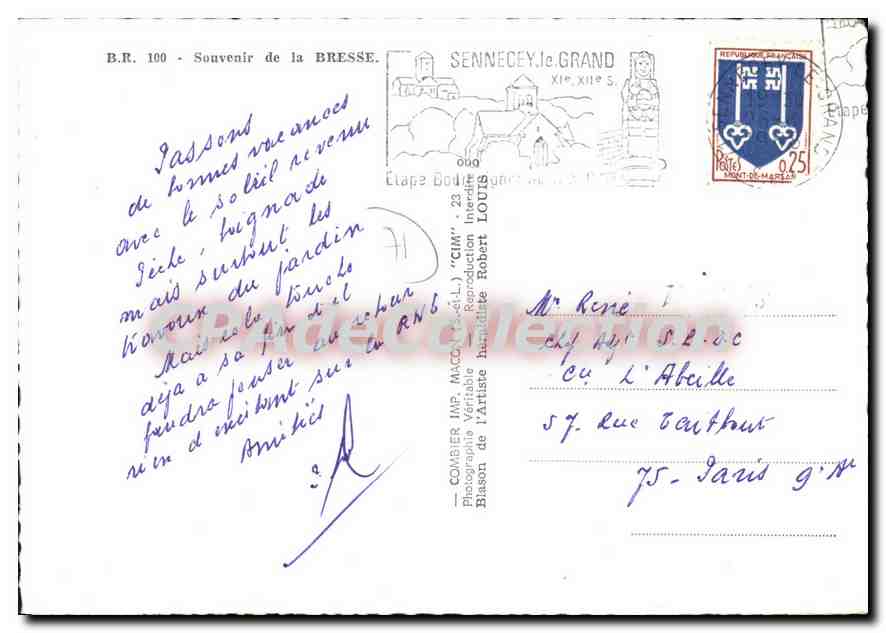 B.R. 100 - Souvenir de la BRESSE.
SENNECEY-le-GRAND
XIe, XIIe S.
Etape
REPUBLIQUE FRANÇAISE
POSTES
0,25
MONT-DE-MARSAN
Passons
de bonnes vacances
avec le soleil revenu
Pêche, baignade
mais surtout les
travaux du jardin
Mais cela touche
déjà à sa fin et il
faudra penser au retour
rien d'excitant sur la RN6
Amitiés
71
— COMBIER IMP. MACON (S.-et-L.) "CIM" - 23
Photographie Véritable Reproduction Interdite
Blason de l'Artiste héraldiste Robert LOUIS
Mr René
Cie L'Abeille
57, Rue Taitbout
75 - Paris 9e Ar
CPAdeCollection